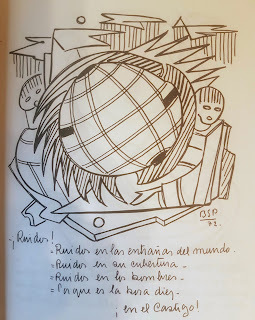 BSP
72.
¡Ruidos!
= Ruidos en las entrañas del mundo.
= Ruidos en su cubertura -
= Ruidos en los hombres -
= Porque es la hora diez -
¡ en el Castigo!